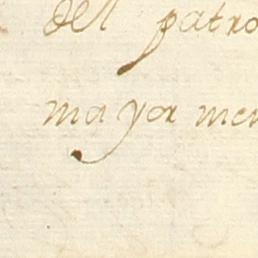 del patro
mayor men